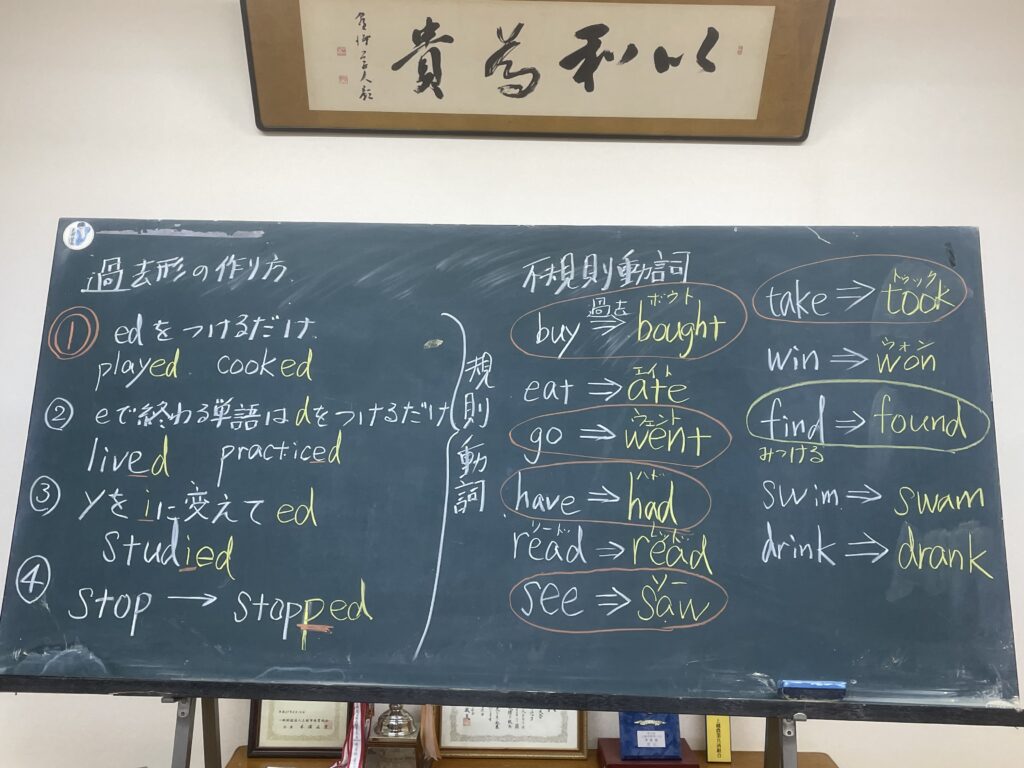 以和為貴
過去形の作り方
① edをつけるだけ
played cooked
② eで終わる単語はdをつけるだけ
lived practiced
③ yをiに変えて ed
studied
④ stop → stopped
規則動詞
不規則動詞
過去 ボウト
buy ⇒ bought
エイト
eat ⇒ ate
ウェント
go ⇒ went
ハド
have ⇒ had
リード レッド
read ⇒ read
ソー
see ⇒ saw
トゥック
take ⇒ took
ウォン
win ⇒ won
find ⇒ found
みつける
swim ⇒ swam
drink ⇒ drank